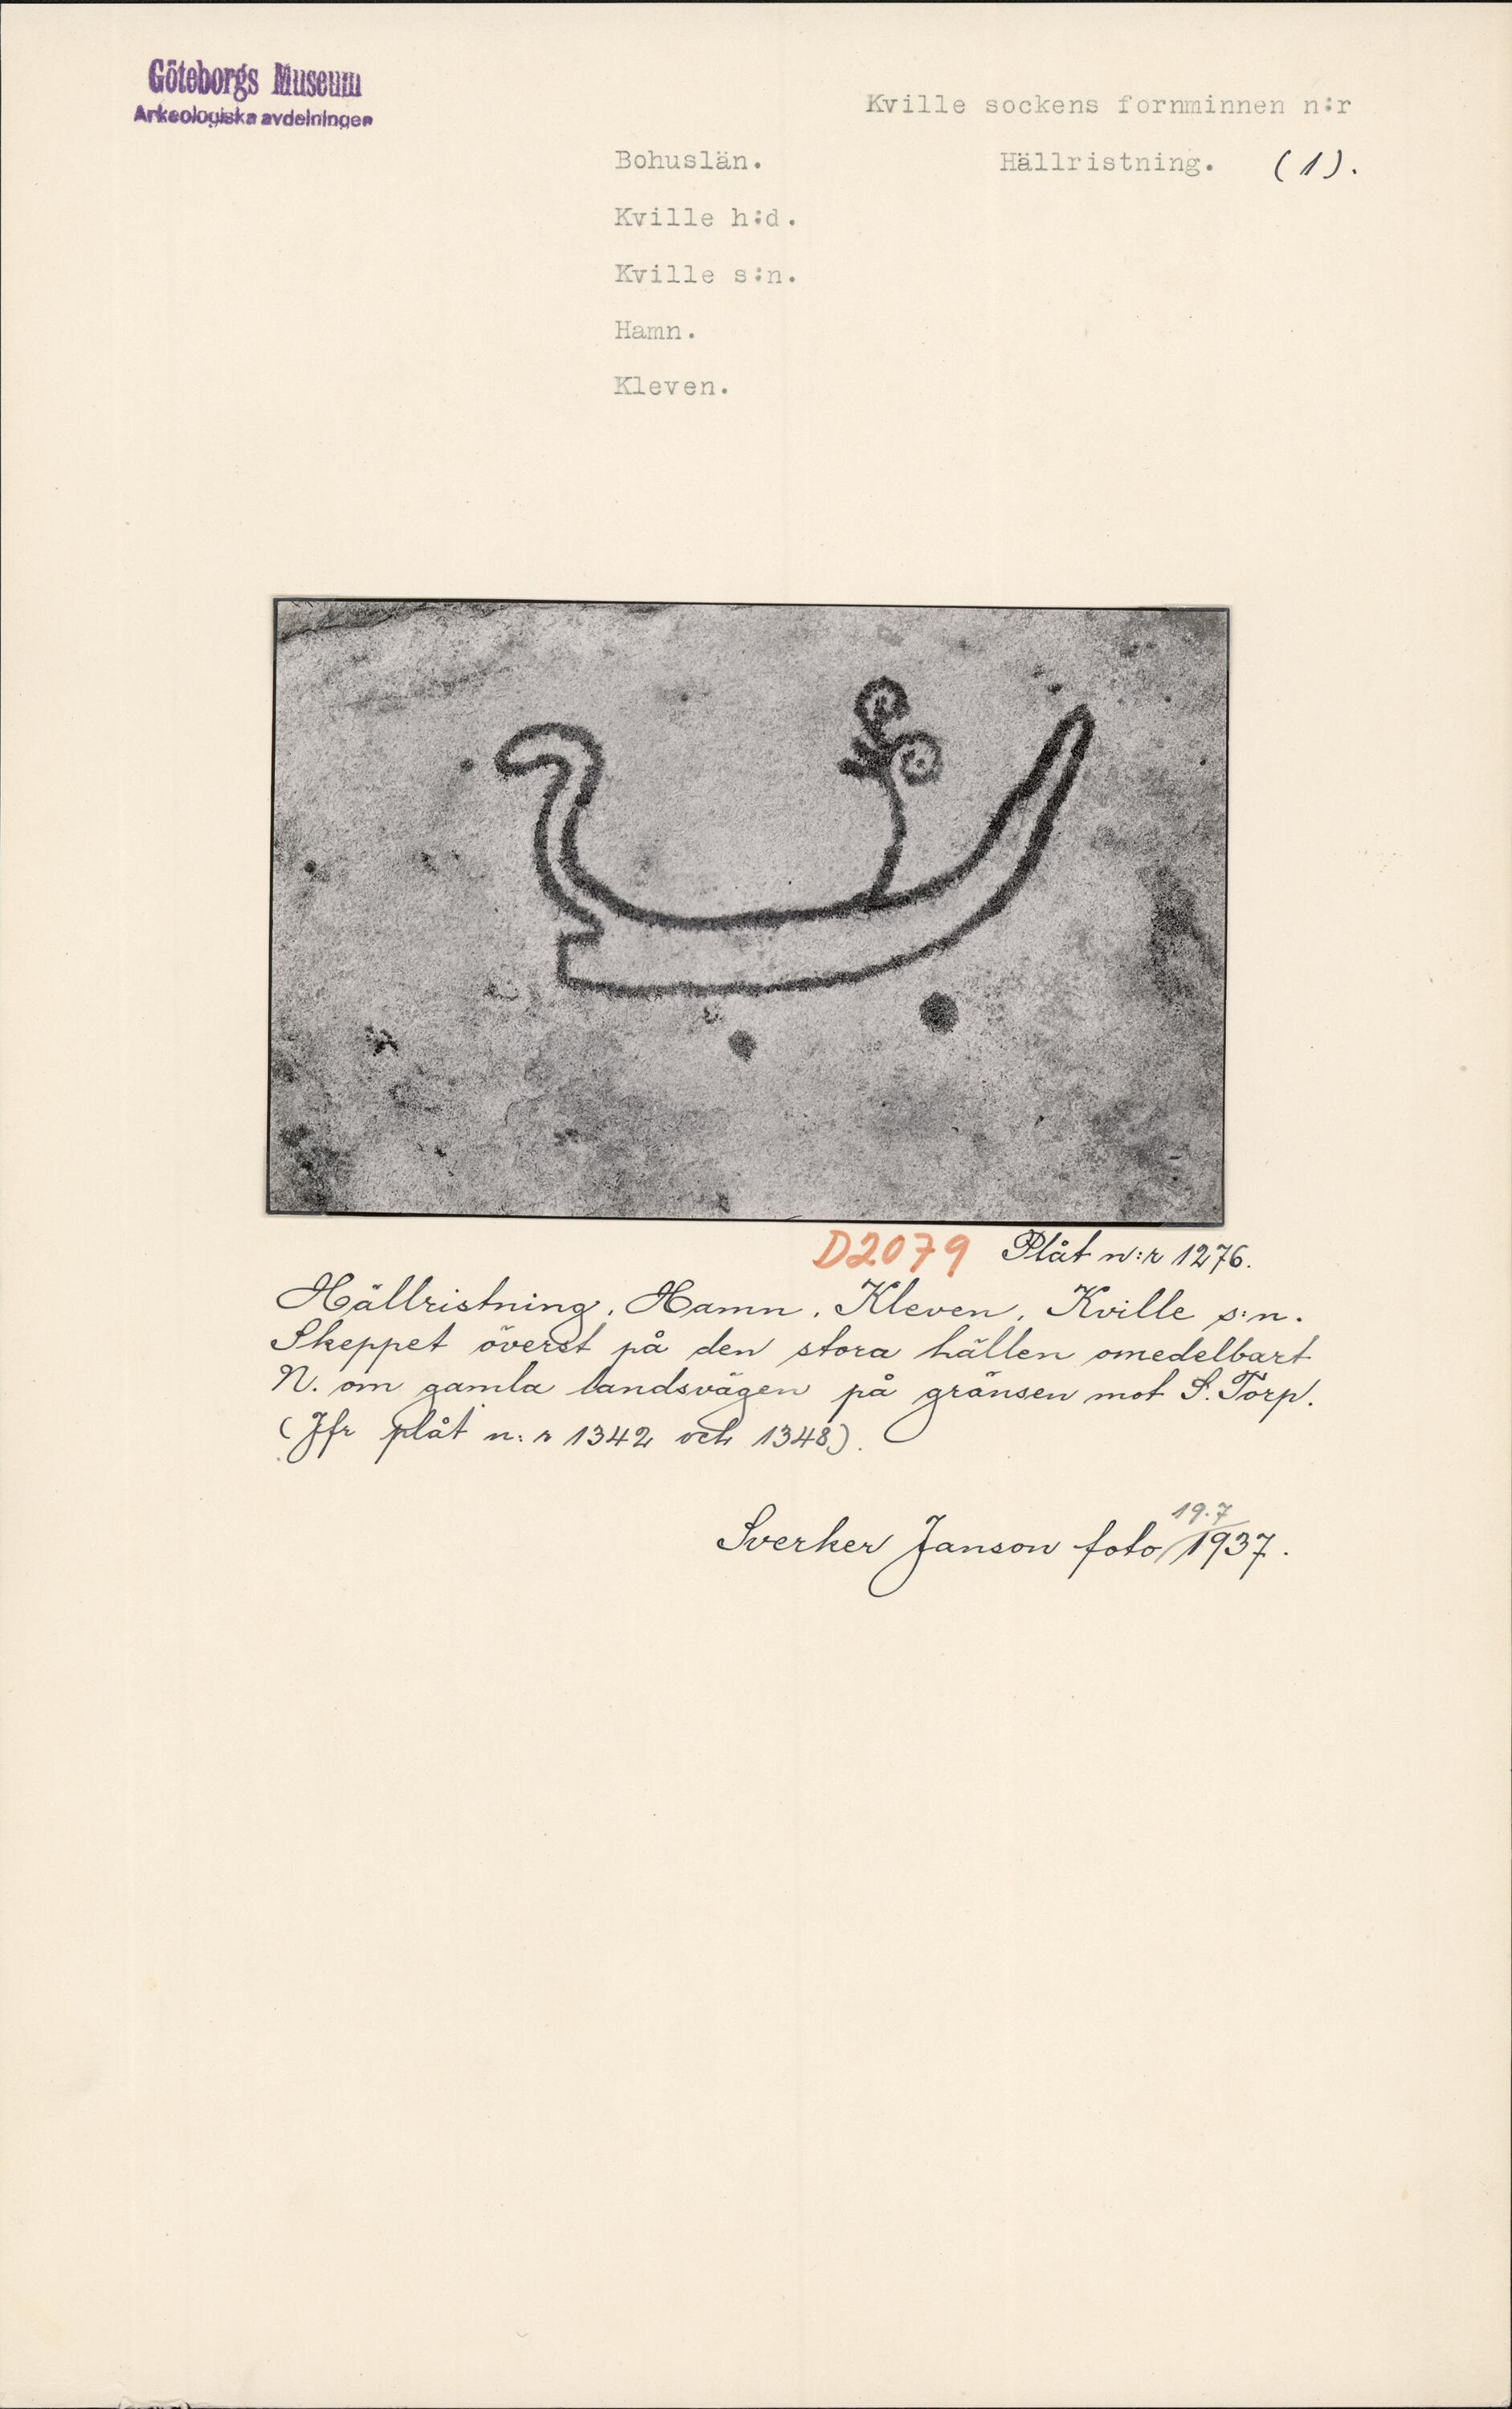 Göteborgs Museum
Arkeologiska avdelningen
Kville sockens fornminnen n:r
Bohuslän. Hällristning. (1).
Kville h:d.
Kville s:n.
Hamn.
Kleven.
D2079 Plåt n:r 1276.
Hällristning, Hamn, Kleven, Kville s:n.
Skeppet överst på den stora hällen omedelbart
N. om gamla landsvägen på gränsen mot S. Torp.
(Jfr plåt n:r 1342 och 1348).
19.7
Sverker Janson foto / 1937.